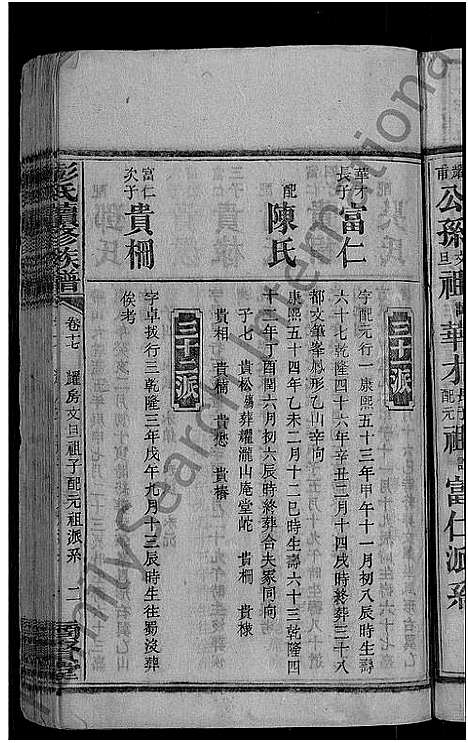 耀
甫
公孫文旦祖
華才長子配元祖
富仁派系
三十一派
華才
長子
富仁
字配元行一康熙五十三年甲午十一月初八辰時生壽
六十七乾隆四十六年辛丑三月十四戌時終葬三十八
都文筆峯鳳形乙山辛向
配
陳氏
康熙五十四年乙未二月十二巳時生壽六十三乾隆四
十二年丁酉閏六月初六辰時終葬合夫冢同向
子七 貴松殤葬耀瀧山庵堂屺 貴棡 貴棣
貴相 貴楠 貴懋 貴椿
三十二派
富仁
次子
貴棡
字卓拔行三乾隆三年戊午九月十三辰時生往蜀沒葬
俟考
彭氏續修族譜
卷十七 耀房文旦祖子配元祖派系 二
Family Search International